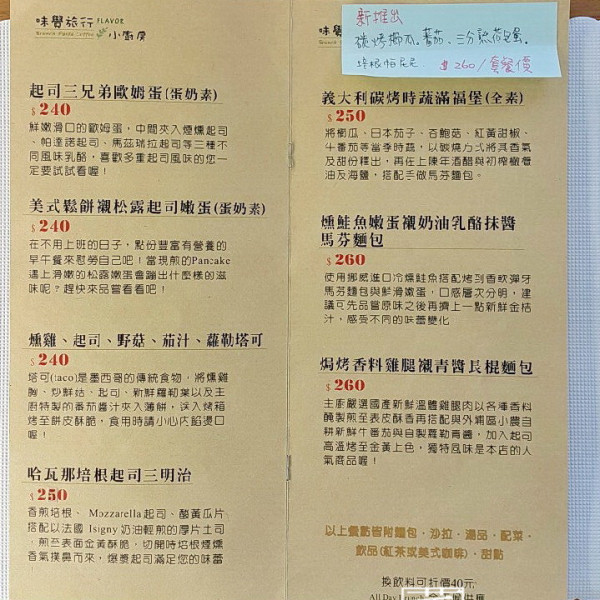 味覺旅行 FLAVOR
Brunch Pasta Coffee 小廚房
起司三兄弟歐姆蛋(蛋奶素)
$240
鮮嫩滑口的歐姆蛋，中間夾入煙燻起司
、帕達諾起司、馬茲瑞拉起司等三種不
同風味乳酪，喜歡多重起司風味的您一
定要試試看喔！
美式鬆餅襯松露起司嫩蛋(蛋奶素)
$240
在不用上班的日子，點份豐富有營養的
早午餐來慰勞自己吧！當現煎的Pancake
遇上滑嫩的松露嫩蛋會蹦出什麼樣的滋
味呢？趕快來品嘗看看吧！
燻雞、起司、野菇、茄汁、蘿勒塔可
$240
塔可(taco)是墨西哥的傳統食物，將燻雞
胸、炒鮮菇、起司、新鮮羅勒葉以及主
廚特製的番茄醬汁來入薄餅，送入烤箱
烤至餅皮酥脆，食用時請小心內餡燙口
喔！
哈瓦那培根起司三明治
$250
香煎培根、Mozzarella起司、酸黃瓜片
搭配以法國 Isigny 奶油輕煎的厚片土司
，煎至表面金黃酥脆，切開時培根煙燻
香氣撲鼻而來，爆漿起司滿足您的味蕾
味覺旅行
新推出
碳烤櫛瓜、蕃茄、三分熟荷包蛋、
培根帕尼尼 $260/套餐價
義大利碳烤時蔬滿福堡(全素)
$250
將櫛瓜、日本茄子、杏鮑菇、紅黃甜椒、
牛番茄等當季時蔬，以碳燒方式將其香氣
及甜份釋出，再佐上陳年酒醋與初榨橄欖
油及海鹽，搭配手做馬芬麵包。
燻鮭魚嫩蛋襯奶油乳酪抹醬
馬芬麵包
$260
使用挪威進口冷燻鮭魚搭配烤到香軟彈牙
馬芬麵包與鮮滑嫩蛋，口感層次分明，建
議可先品嘗原味之後再擠上一點新鮮金桔
汁，感受不同的味蕾變化
焗烤香料雞腿襯青醬長棍麵包
$260
主廚嚴選國產新鮮溫體雞腿肉以各種香料
醃製煎至表皮酥香再搭配與外埔區小農自
耕新鮮牛番茄與自製羅勒青醬，加入起司
高溫烤至金黃上色，獨特風味是本店的人
氣商品喔！
以上餐點皆附麵包、沙拉、湯品、配菜、
飲品(紅茶或美式咖啡)、甜點
換飲料可折價40元
All Day Brunch